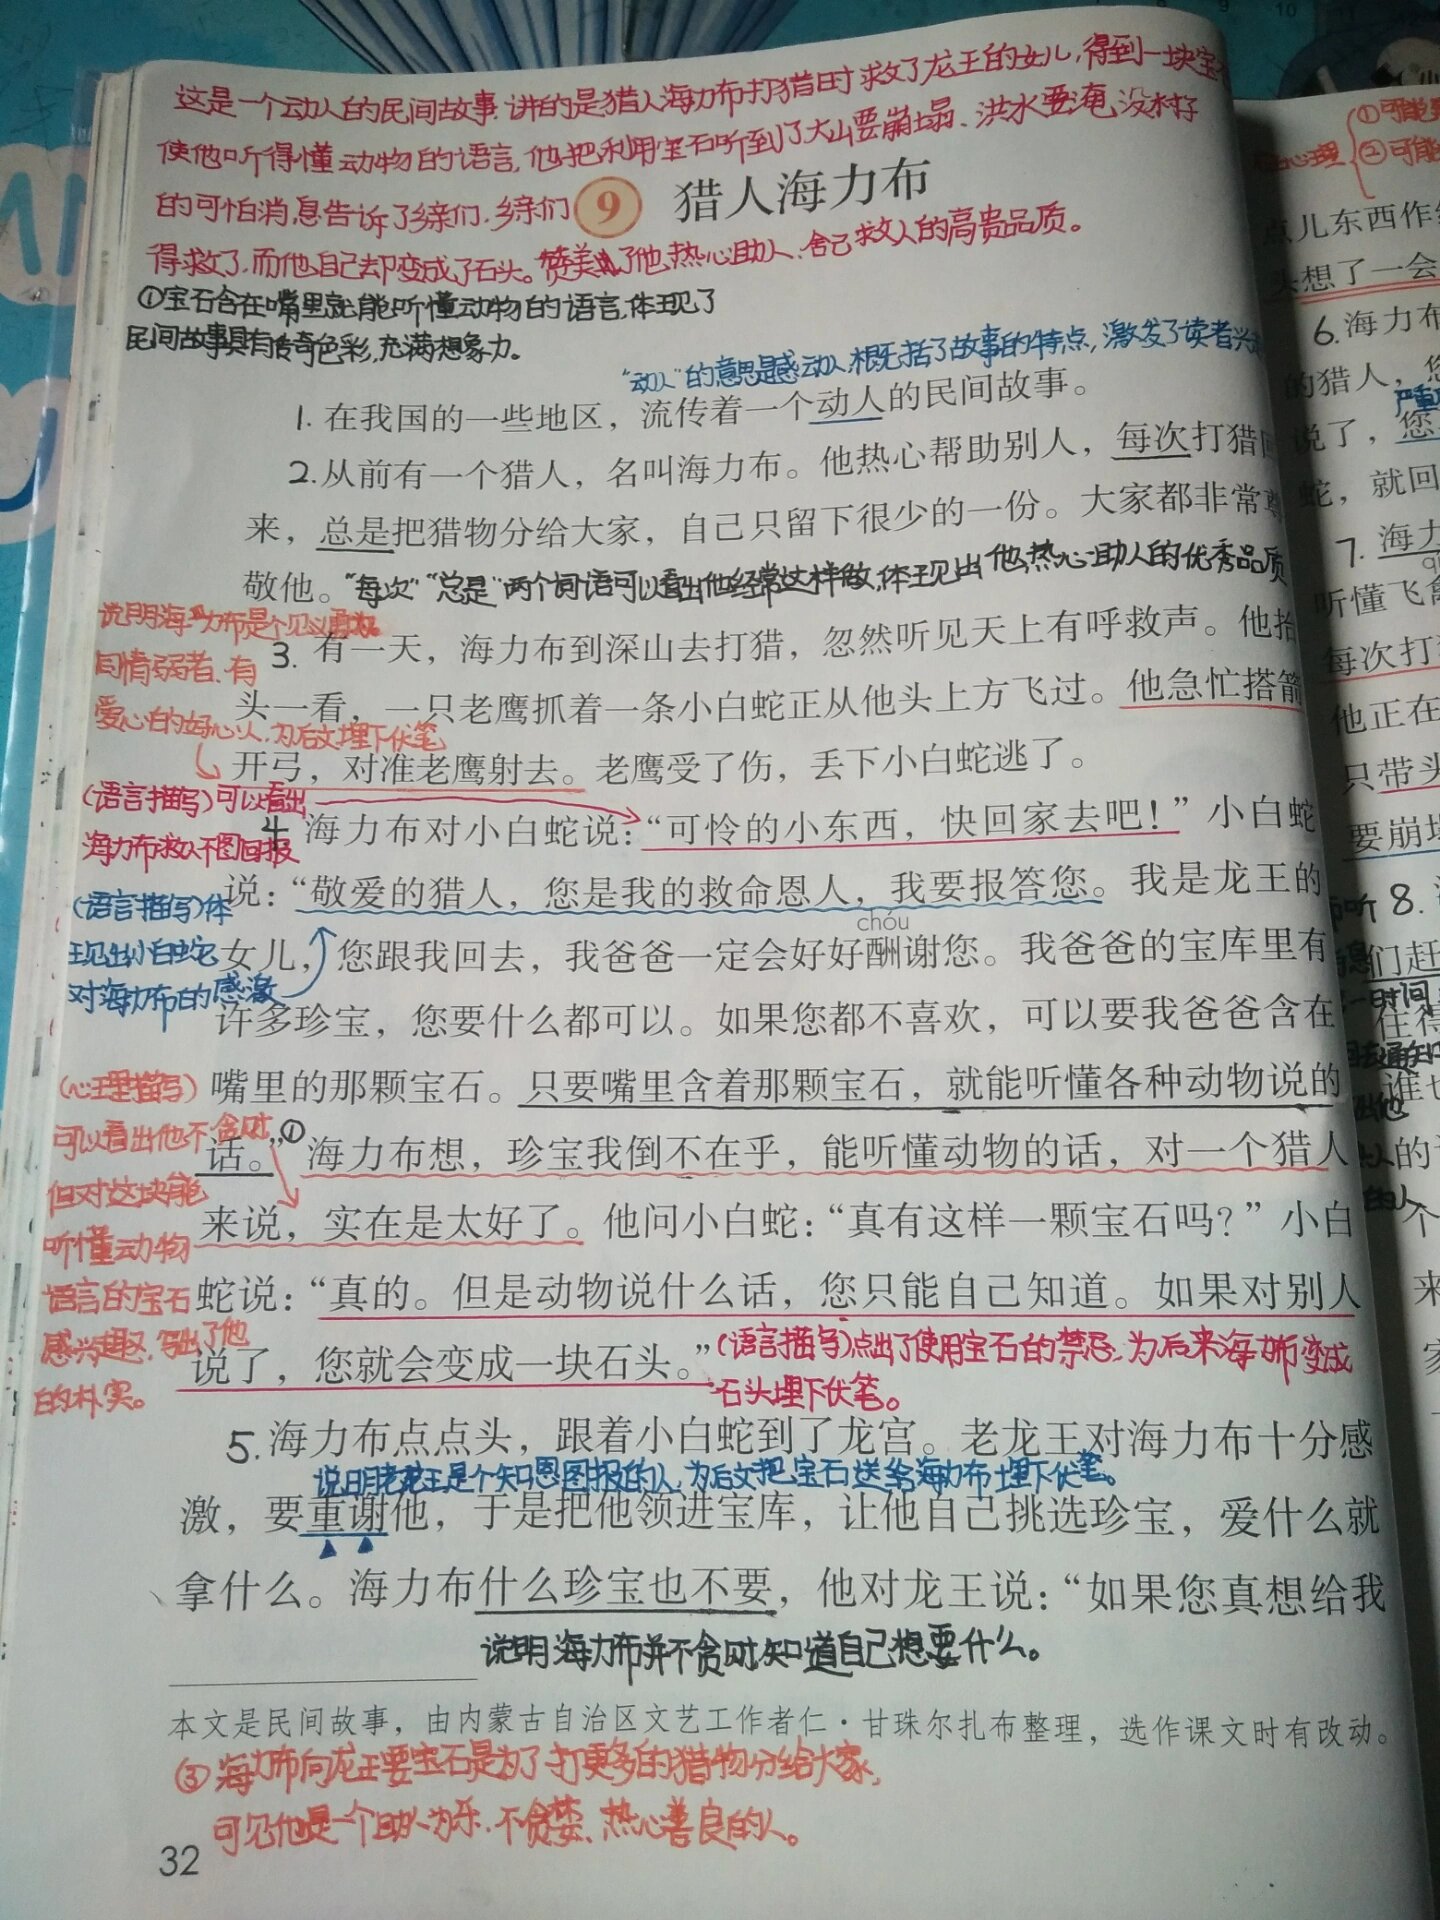 这是一个动人的民间故事,讲的是猎人海力布打猎时救了龙王的女儿,得到一块宝
使他听得懂动物的语言,他把利用宝石听到了大山要崩塌、洪水要淹没村子
的可怕消息告诉了乡亲们,乡亲们
9 猎人海力布
得救了,而他自己却变成了石头。赞美了他热心助人、舍己救人的高贵品质。
①宝石含在嘴里就能听懂动物的语言,体现了
民间故事具有传奇色彩,充满想象力。
“动人”的意思是感动人,概括了故事的特点,激发了读者兴
1.在我国的一些地区,流传着一个动人的民间故事。
2.从前有一个猎人,名叫海力布。他热心帮助别人,每次打猎回
来,总是把猎物分给大家,自己只留下很少的一份。大家都非常尊
敬他。“每次”“总是”两个词语可以看出他经常这样做,体现出他热心助人的优秀品质
说明海力布是个见义勇为、
同情弱者、有
爱心的好心人,为后文埋下伏笔
3.有一天,海力布到深山去打猎,忽然听见天上有呼救声。他抬
头一看,一只老鹰抓着一条小白蛇正从他头上方飞过。他急忙搭箭
开弓,对准老鹰射去。老鹰受了伤,丢下小白蛇逃了。
(语言描写)可以看出
海力布救人不图回报
4 海力布对小白蛇说:“可怜的小东西,快回家去吧!”小白蛇
说:“敬爱的猎人,您是我的救命恩人,我要报答您。我是龙王的
(语言描写)体
现出小白蛇
对海力布的感激
chóu
女儿,您跟我回去,我爸爸一定会好好酬谢您。我爸爸的宝库里有
许多珍宝,您要什么都可以。如果您都不喜欢,可以要我爸爸含在
嘴里的那颗宝石。只要嘴里含着那颗宝石,就能听懂各种动物说的
话。”①海力布想,珍宝我倒不在乎,能听懂动物的话,对一个猎人
来说,实在是太好了。他问小白蛇:“真有这样一颗宝石吗?”小白
蛇说:“真的。但是动物说什么话,您只能自己知道。如果对别人
说了,您就会变成一块石头。”
(心理描写)
可以看出他不贪财
但对这块能
听懂动物
语言的宝石
感兴趣,写出了他
的朴实。
(语言描写)点出了使用宝石的禁忌,为后来海力布变成
石头埋下伏笔。
5.海力布点点头,跟着小白蛇到了龙宫。老龙王对海力布十分感
说明老龙王是个知恩图报的人,为后文把宝石送给海力布埋下伏笔。
激,要重谢他,于是把他领进宝库,让他自己挑选珍宝,爱什么就
拿什么。海力布什么珍宝也不要,他对龙王说:“如果您真想给我
说明海力布并不贪财,知道自己想要什么。
本文是民间故事,由内蒙古自治区文艺工作者仁·甘珠尔扎布整理,选作课文时有改动。
③海力布向龙王要宝石是为了打更多的猎物分给大家,
可见他是一个助人为乐、不贪婪、热心善良的人。
32
心理
①可能
②可能
点儿东西作
头想了一会
6.海力布
的猎人,您
严重
说了,您
蛇,就回
7.海力
听懂飞禽
每次打
他正在
只带头
要崩塌
8.
们赶
一时间
住得
回去通知
谁也
的
个
来
家